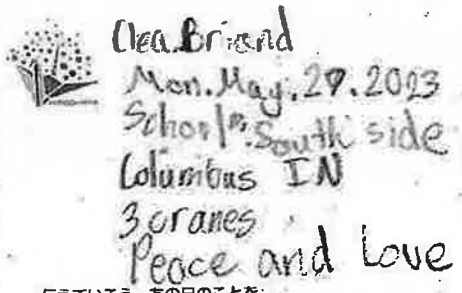 Clea Briand
Mon. May. 29. 2023
School: South side
Columbus IN
3 cranes
Peace and Love
伝えていこう あの日のことを